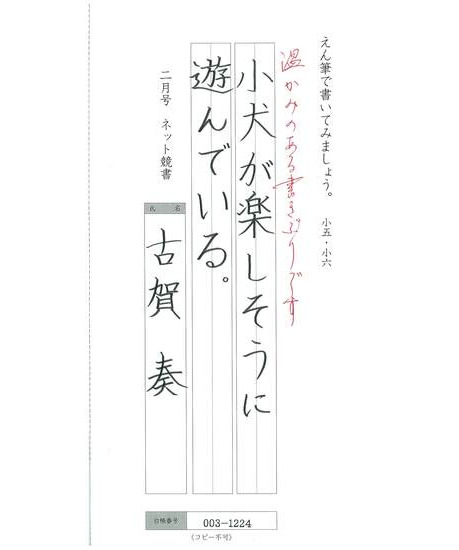 えん筆で書いてみましょう。 小五・小六
温かみのある書きぶりです
小犬が楽しそうに
遊んでいる。
二月号 ネット競書
氏 名
古賀 奏
台帳番号 003-1224
(コピー不可)